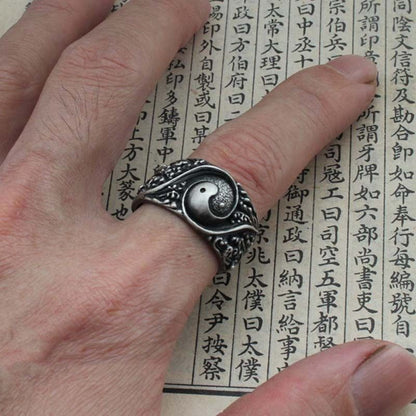 同陰文信符及勘合卽如命奉行每編號自
所謂 所謂牙牌如六部尚書吏曰
宗伯兵曰 司寇工曰司空五軍都督
曰中丞十 侍御通政曰納言給事
太常大理曰 兆太僕曰太僕
政曰方伯府曰二 曰令尹按察
易印外自製或曰其
印多鑄軍中
方大篆